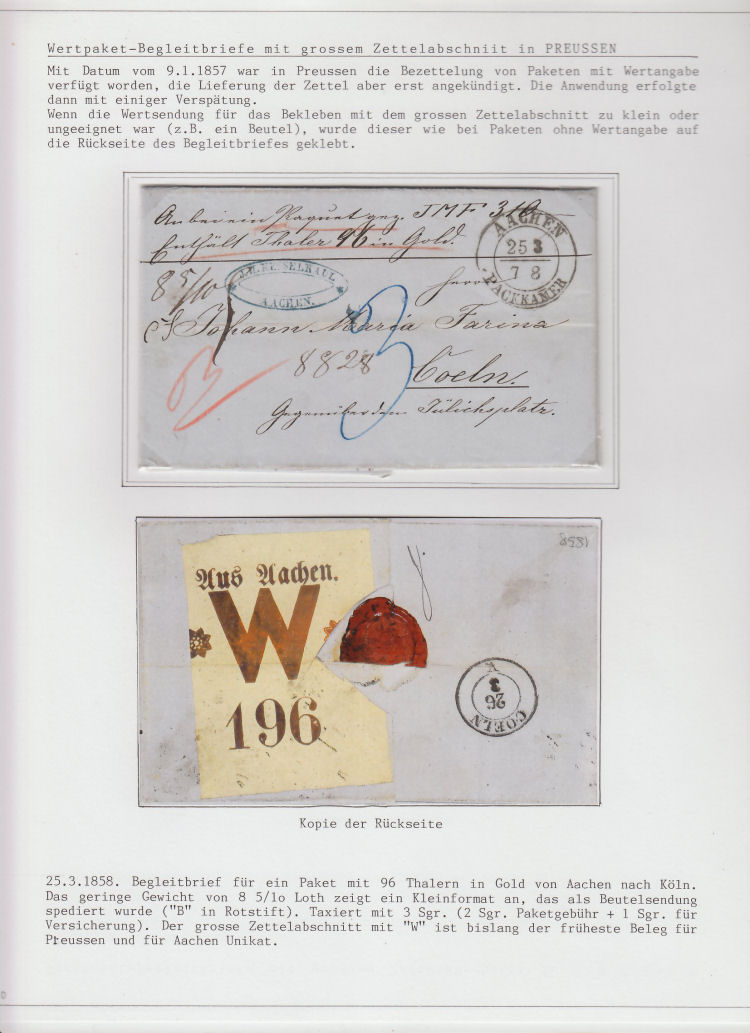 Wertpaket-Begleitbriefe mit grossem Zettelabschniit in PREUSSEN
Mit Datum vom 9.1.1857 war in Preussen die Bezettelung von Paketen mit Wertangabe
verfügt worden, die Lieferung der Zettel aber erst angekündigt. Die Anwendung erfolgte
dann mit einiger Verspätung.
Wenn die Wertsendung für das Bekleben mit dem grossen Zettelabschnitt zu klein oder
ungeeignet war (z.B. ein Beutel), wurde dieser wie bei Paketen ohne Wertangabe auf
die Rückseite des Begleitbriefes geklebt.
Anbei ein Paquet gez. JMF 310
Enthält Thaler 96 in Gold.
AACHEN
25 3
7 8
PACKKAMER
8 5/10
AACHEN.
Herrn
Johann Maria Farina
3
8828
Coeln.
Gegenüber dem Jülichsplatz.
8581
Aus Aachen.
W
196
COELN
26
3
Kopie der Rückseite
25.3.1858. Begleitbrief für ein Paket mit 96 Thalern in Gold von Aachen nach Köln.
Das geringe Gewicht von 8 5/1o Loth zeigt ein Kleinformat an, das als Beutelsendung
spediert wurde ("B" in Rotstift). Taxiert mit 3 Sgr. (2 Sgr. Paketgebühr + 1 Sgr. für
Versicherung). Der grosse Zettelabschnitt mit "W" ist bislang der früheste Beleg für
Preussen und für Aachen Unikat.